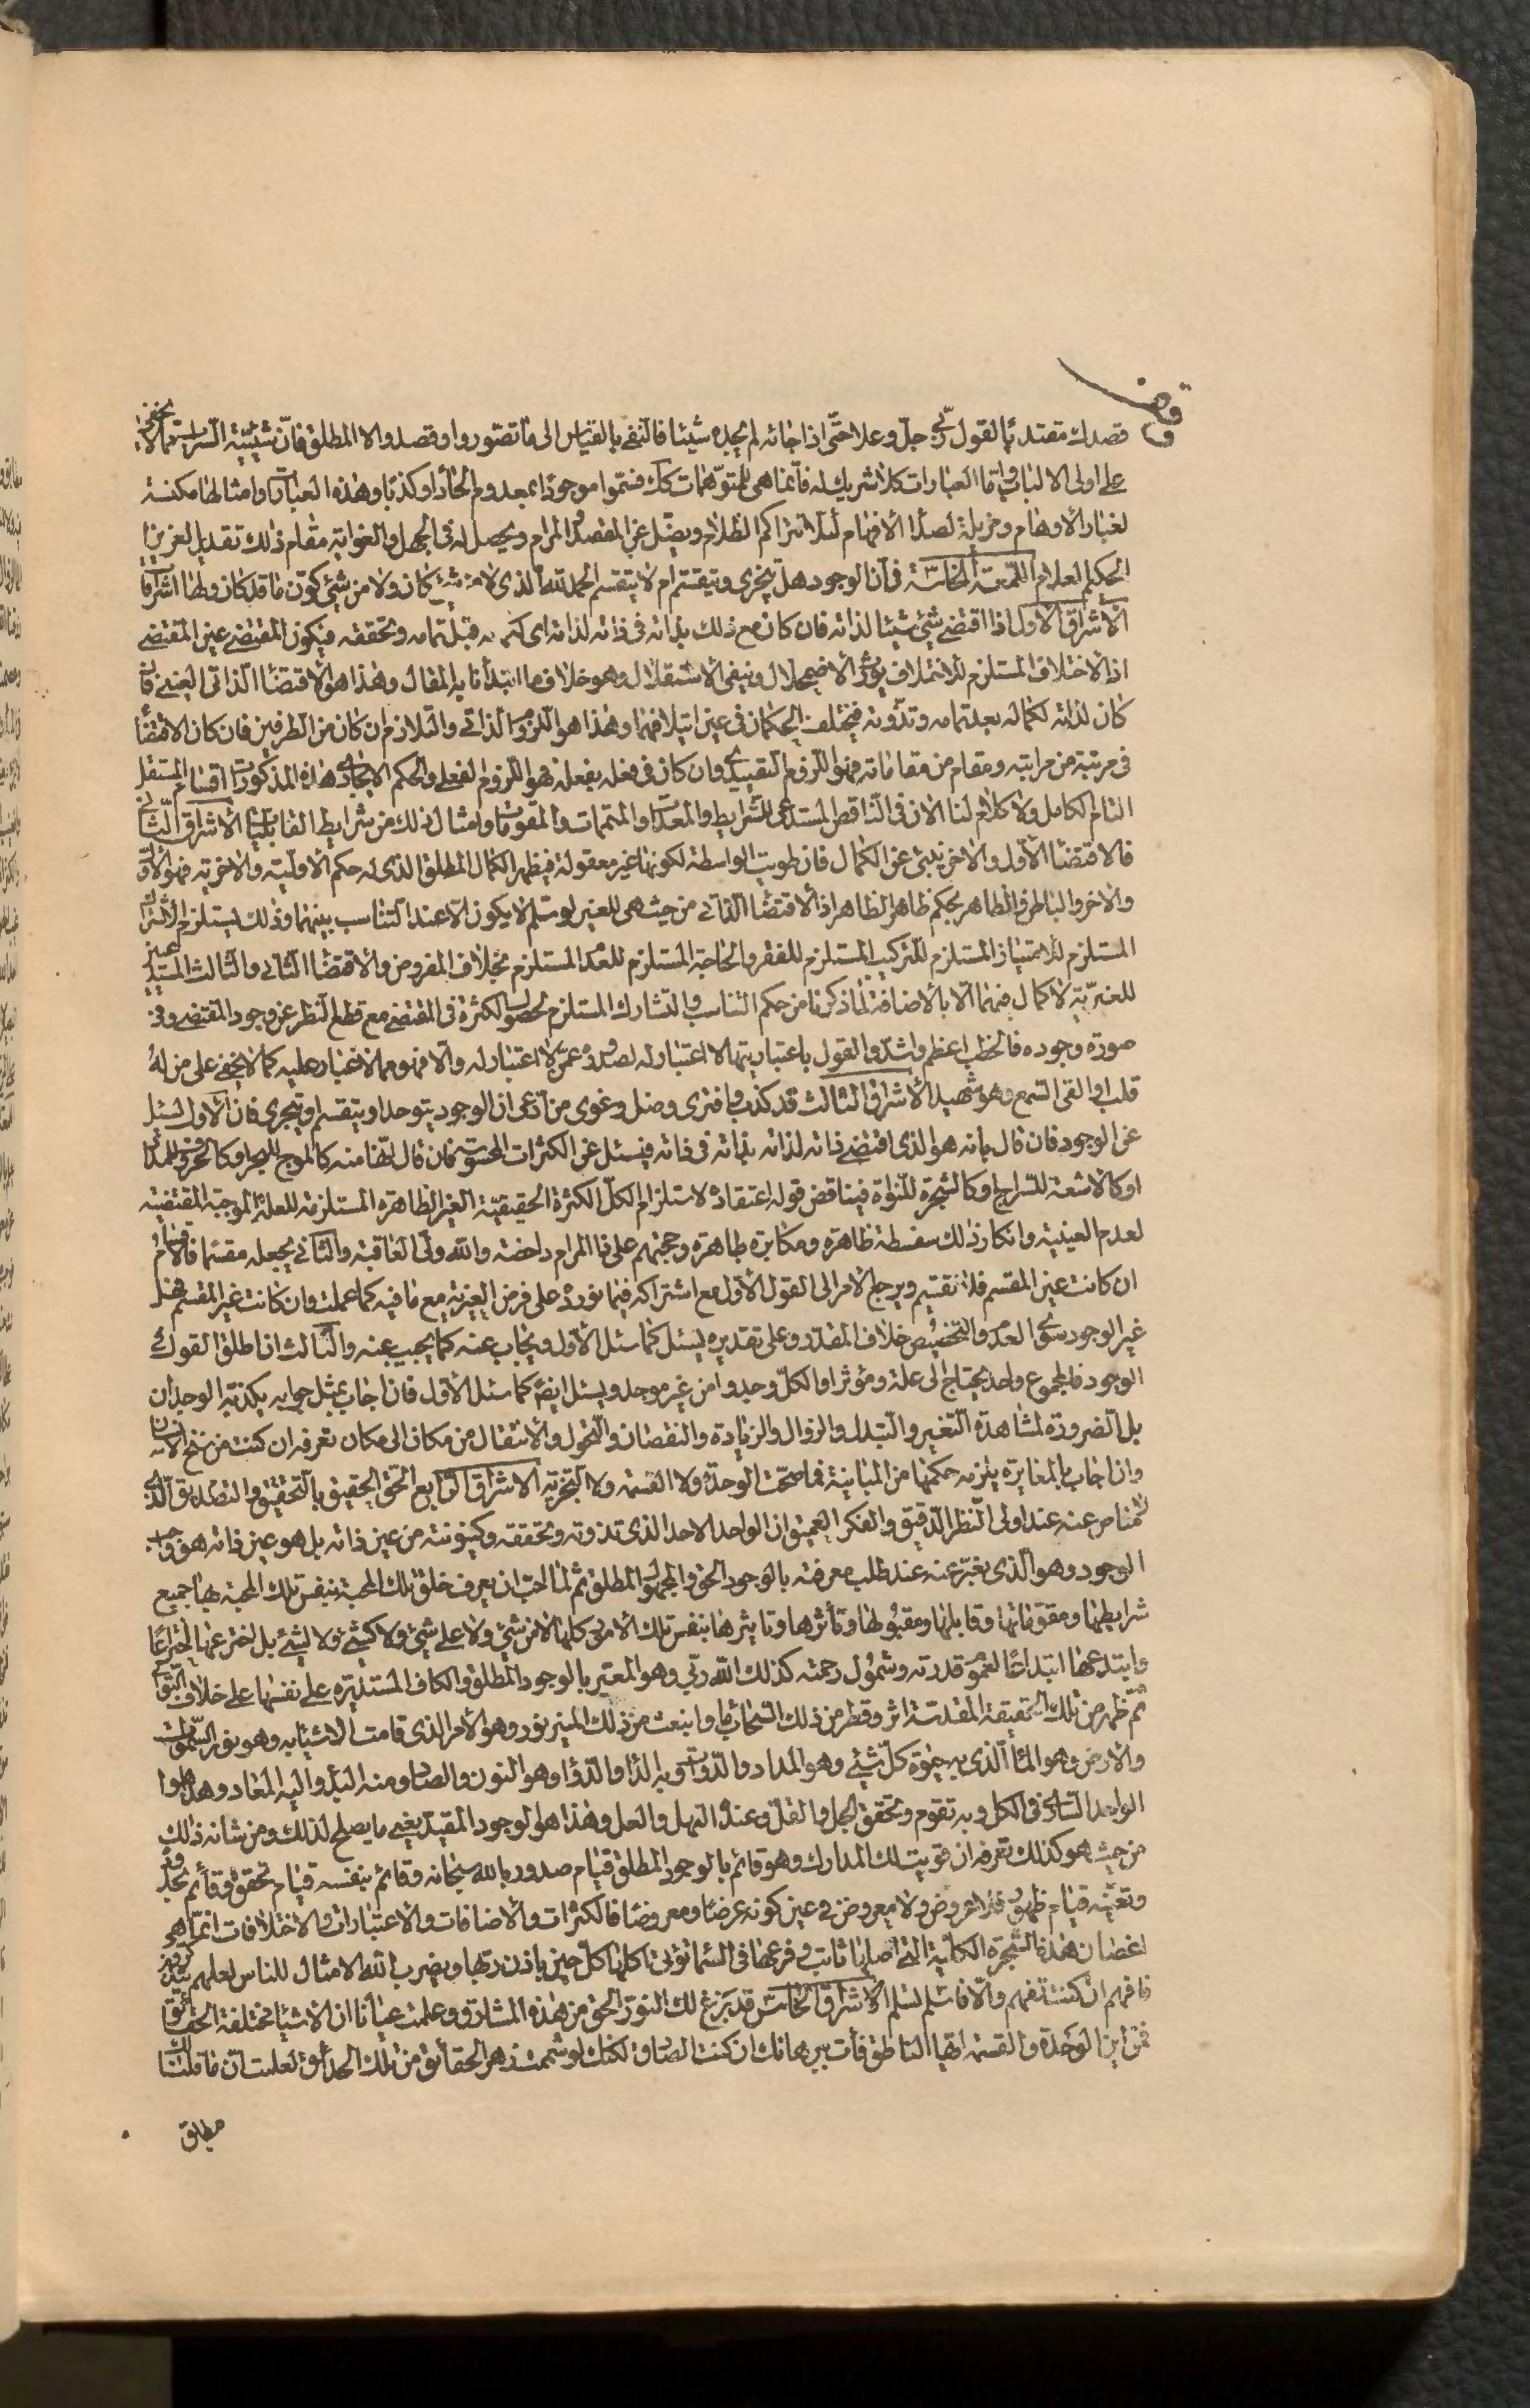 قصدك مقتد ئما لقول ربى جل وعلا حتى اذا جائه لم يجده شيئا فالنفى بالقياس الى ما تصوروا وقصدوا لا المطلق فان شيئية السراب مما لا يخفى
على اولى الالباب واما العبارات كلا شريك له فانما هى للمتوهمات كك فسموا موجودا بمعدوم الحادا وكذبا وهذه العبارات وامثالها مكنسة
لغبار الاوهام ومزيلة لصدأ الافهام لئلا تتراكم الظلام ويضل عن المقصد والمرام ويحصل له فى الجهل والغواية مقام ذلك تقدير العزيز
الحكيم العلام اللمعة الخامسة فى ان الوجود هل يتجزى ويتقسم ام لا يتقسم الحمد لله الذى لا من شئ كان ولا من شئ كون ما قد كان ولها اشراقات
الاشراق الاول اذا اقتضى شئ شيئا لذاته فان كان مع ذلك بذاته فى ذاته لذاته اى قبل تمامه وتحققه فيكون المقتضى عين المقتضى
اذ الاختلاف المستلزم للائتلاف يورث الاضمحلال وينفى الاستقلال وهو خلاف ما ابتدأنا به المقال وهذا هو الاقتضاء الذاتى العينى فان
كان لذاته لكماله بعد تمامه وتذوته فيختلف الحكمان فى عين ايتلافهما وهذا هو اللزوم الذاتى والتلازم ان كان من الطرفين فان كان الاقتضاء
فى مرتبة من مراتبه ومقام من مقاماته فهو اللزوم التقييدى وان كان فى فعله بفعله فهو اللزوم الفعلى والحكم الايجادى هذه المذكورات اقسام المستقل
التام الكامل ولا كلام لنا الان فى الناقص المستدعى للشرايط والمعدات والمتممات والمقومات وامثال ذلك من شرايط القابليات الاشراق الثانى
فالاقتضاء الاول والاخر ينبئ عن الكمال فان طويت الواسطة لكونها غير معقولة فيظهر الكمال المطلق الذى له حكم الاولية والاخرية فهو الاول
والاخر والباطن والظاهر بحكم ظاهر الظاهر اذ الاقتضاء الذاتى من حيث هى للغير لو سلم لا يكون الا عند التناسب بينهما وذلك يستلزم الاشتراك
المستلزم للامتياز المستلزم للتركيب المستلزم للفقر والحاجة المستلزم للعدم المستلزم بخلاف المفروض والاقتضاء الثانى والثالث المستدعيين
للغيرية لا كمال فيهما الا بالاضافة لما ذكرنا من حكم التناسب والتشارك المستلزم لحصول الكثرة فى المقتضى مع قطع النظر عن وجود المقتضى وفى
صورة وجوده فالخطب اعظم واشد والقول باعتباريتها لا اعتبار له لصدوره عمن لا اعتبار له والا فهو مما لا غبار عليه كما لا يخفى على من له
قلب او القى السمع وهو شهيد الاشراق الثالث قد كذب وافترى وضل وغوى من ادعى ان الوجود يتوحد او يتقسم او يتجزى فان الاول يسئل
عن الوجود فان قال بانه هو الذى اقتضى ذاته لذاته بذاته فى ذاته فيسئل عن الكثرات المحسوسة فان قال انها منه كالموج للبحر او كالحروف للمداد
او كالاشعة للسراج او كالشجرة للنواة فيناقض قوله اعتقاده لاستلزام الكل الكثرة الحقيقية الغير الظاهرة المستلزمة للعلة الموجبة المقتضية
لعدم العينية وانكار ذلك سفسطة ظاهرة ومكابرة ظاهرة وحجتهم على ذا المرام داحضة والله ولى العاقبة والثانى يجعله مقسما فالاقسام
ان كانت عين المقسم فلا تقسيم ويرجع الامر الى القول الاول مع اشتراكه فيما نورد على فرض العينية مع ما فيه كما علمت وان كانت غير المقسم فهل
غير الوجود سوى العدم والتخصيص خلاف المقدر وعلى تقديره يسئل كما سئل الاول ويجاب عنه كما يجيب عنه والثالث اذا طلق القول
الوجود فالمجموع واحد يحتاج الى علة ومؤثر او الكل وجدوا من غير موجد ويسئل ايضا كما سئل الاول فان اجاب بمثل جوابه يكذبه الوجدان
بل الضرورة لمشاهدة التغيير والتبدل والزوال والزيادة والنقصان والتحول والانتقال من مكان الى مكان تعرفه ان كنت من سنخ الانسان
وان اجاب بالمغايرة يلزمه حكمها من المباينة فما صحت الوحدة ولا القسمة ولا التجزية الاشراق الرابع الحق الحقيق بالتحقيق والتصديق الذى
لا مناص عنه عند اولى النظر الدقيق والفكر العميق ان الواحد الاحد الذى تذوته وتحققه وكينونته من عين ذاته بل هو عين ذاته هو واجب
الوجود وهو الذى يعبر عنه عند طلب معرفته بالوجود الحق والمجهول المطلق ثم لما احب ان يعرف خلق تلك المحبة بنفس تلك المحبة بها جميع
شرايطها ومقوماتها وقابلها ومقبولها وتأثرها وتاثيرها بنفس تلك الامور كلها لا من شئ ولا على شئ ولا كشئ ولا لشئ بل اخترعها اختراعا
وابتدعها ابتداعا لعموم قدرته وشمول رحمته كذلك الله ربى وهو المعبر بالوجود المطلق والكاف المستديرة على نفسها على خلاف التوالى
ثم ظهر من تلك الحقيقة المقدسة اثر وقطر من ذلك السحاب ماء وانبعث من ذلك المنير نور وهو الامر الذى قامت الاشياء به وهو نور السموات
والارض وهو الماء الذى به حيوة كل شئ وهو المداد والدوات وبه الداء والدواء وهو النون والصاد ومنه المبدأ واليه المعاد وهذا هو
الواحد السارى فى الكل وبه تقوم وتحقق الجل والقل وعنده النهل والعل وهذا هو الوجود المقيد يعنى ما يصلح لذلك ومن شانه ذلك
من حيث هو كذلك تعرفه ان قويت لك المدارك وهو قائم بالوجود المطلق قيام صدور بالله سبحانه وقائم بنفسه قيام تحقق وقائم بحده
وتعينه قيام ظهور فلا عروض ولا معروض فى عين كونه عرضا ومعروضا فالكثرات والاضافات والاعتبارات والاختلافات انما هى
اغصان هذه الشجرة الكلية التى اصلها ثابت وفرعها فى السماء تؤتى اكلها كل حين باذن ربها ويضرب الله الامثال للناس لعلهم يتذكرون
فافهم ان كنت تفهم والا فاسلم تسلم الاشراق الخامس قد بزغ لك النور الحق من هذه المشارق وعلمت عيانا ان الاشياء مختلفة الحقائق
فمن اين الوحدة والقسمة ايها الناطق فأت ببرهانك ان كنت الصادق لكنك لو شممت زهر الحقائق من تلك الحدائق لعلمت ان ما قلنا لك
مطابق